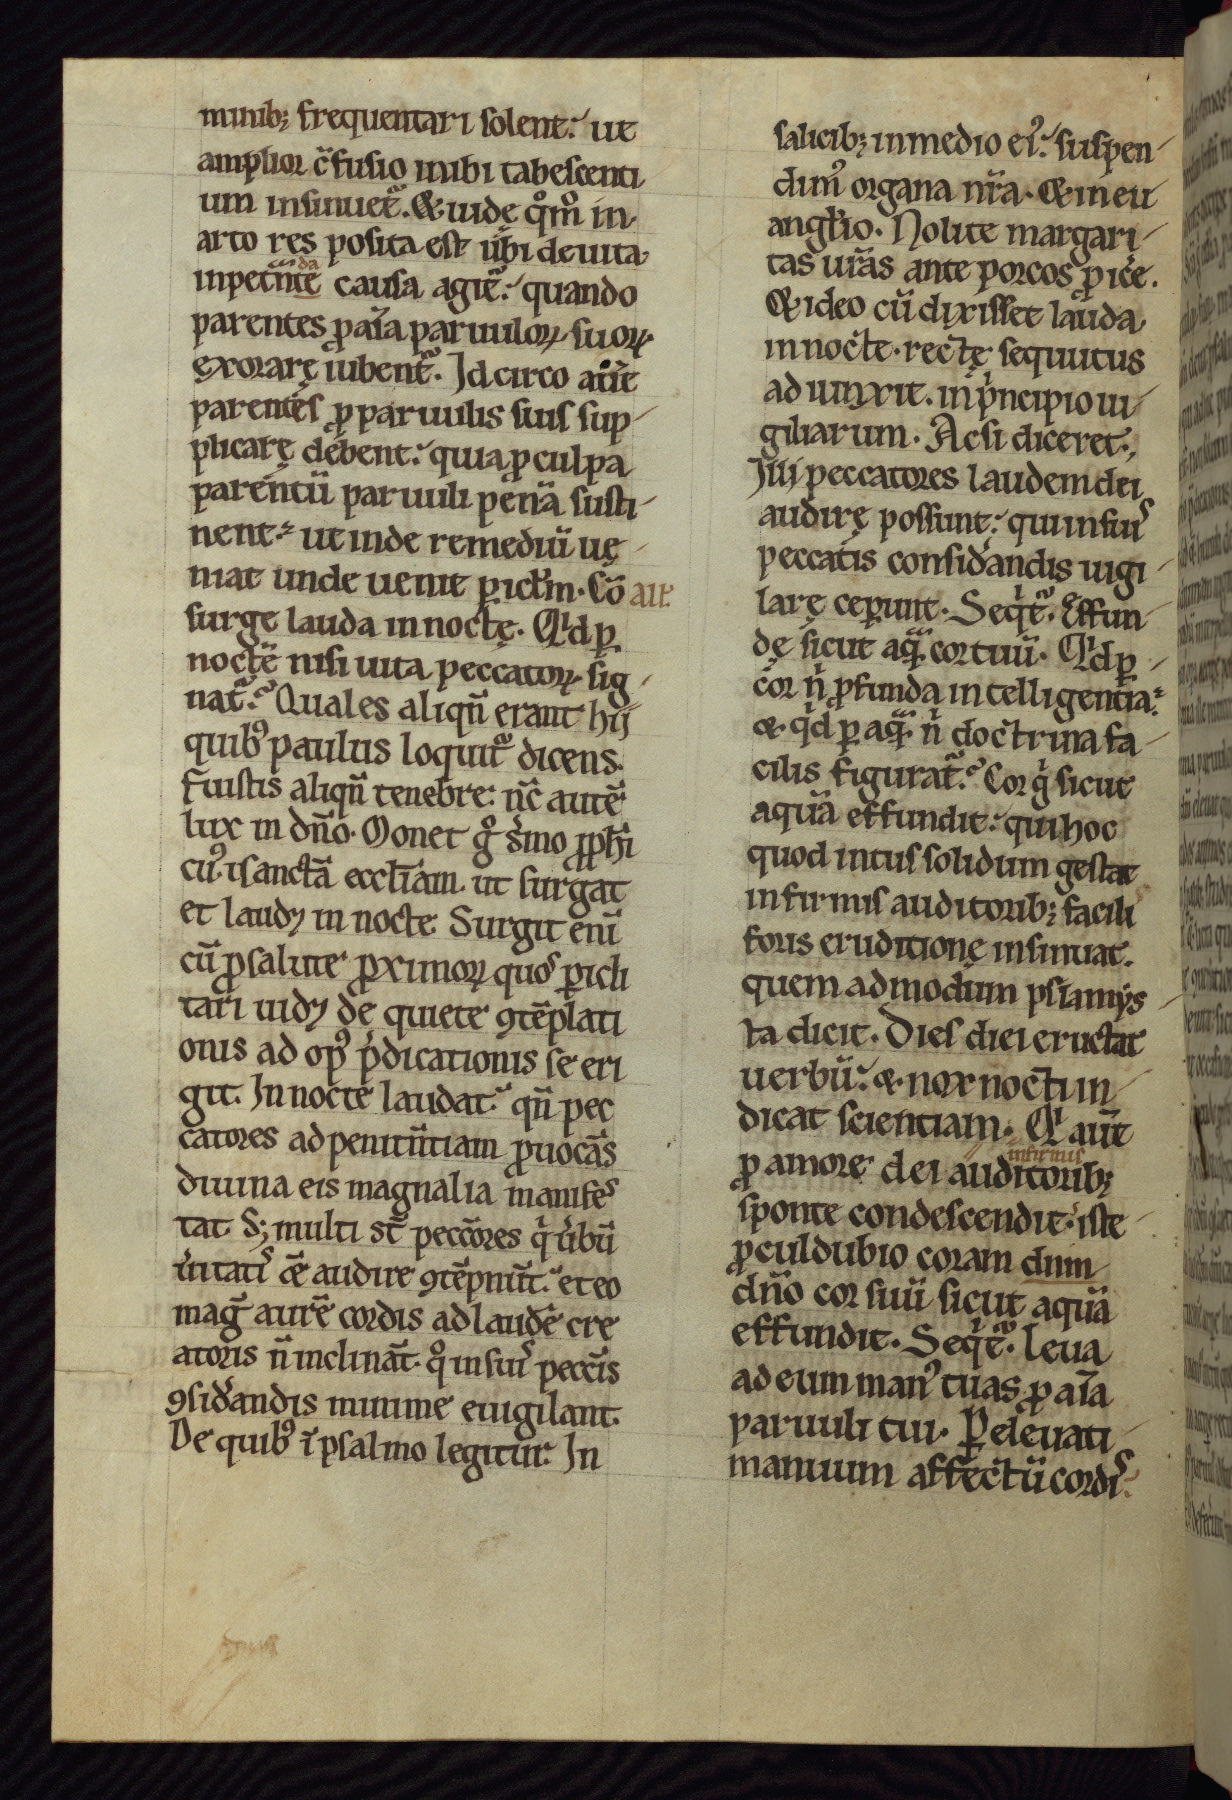 minib; frequentari solent: ut
amplior c̄fusio inibi tabescenti
um insinuet᷑. Et uide qͦm̄ in
arto res posita est ubi de uita
inpetn̄te causa agit᷑: quando
parentes ꝓ aīa paruuloꝝ suoꝝ
exorare iubent᷑. Idcirco aut̄
parentes ꝓ paruulis suis sup
plicare debent: quia ꝓ culpa
parentū paruuli penā susti
nent: ut inde remediū ue
niat unde uenit pic̄lm. Cō aut̄
surge lauda in nocte. Qͥd ꝑ
noctē nisi uita peccatoꝝ sig
nat᷑? Quales aliqn̄ erant hij
quibꝰ paulus loquit᷑ dicens.
fuistis aliqn̄ tenebre: nc̄ autē
lux in dn̄o. Monet gͦ s̄mo ꝓph̄i
cuꝰ sanctā eccl̄iam ut surgat
et laudꝫ in nocte. Surgit enī
cū ꝓ salute ꝓximoꝝ quos ꝑicli
tari uidꝫ de quiete ꝯtēplati
onis ad opꝰ p̄dicationis se eri
git. In nocte laudat: qn̄ pec
catores ad penitn̄tiam ꝓuocās
diuina eis magnalia manifes
tat. S; multi st̄ pecc̄ores qͥ ūbū
ūitatis ēe audire ꝯtēpnūt: et eo
maḡ aurē cordis ad laudē cre
atoris n̄ inclināt. qͦ in suis pecc̄is
ꝯsid̄andis minime euigilant.
De quibꝰ ī psalmo legitur. In
salicib; in medio eiꝰ: suspen
dimꝰ organa nr̄a. Et in eu
angl̄io. Nolite margari
tas ur̄as ante porcos ꝓice.
Et ideo cū dixisset lauda
in nocte. recte sequutus
ad iunxit. in pͥncipio ui
giliarum. Ac si diceret.
Illi peccatores laudem dei
audire possunt: qui in suis
peccatis consid̄andis uigi
lare ceperunt. Seqͥt᷑. Effun
de sicut aqͣm cor tuū. Qͥd ꝑ
cor n̄ ꝓfunda intelligentia:
et qͥd ꝑ aqͣ n̄ doctrina fa
cilis figurat᷑? Cor gͦ sicut
aquā effundit: qui hoc
quod intus solidum gestat
infirmis auditorib; facili
foris eruditione insinuat.
quem ad modum psalmijs
ta dicit. Dies diei eructat
uerbū: et nox nocti in
dicat scientiam. Qͥ aut̄
infirmis
ꝓ amore dei auditorib;
sponte condescendit: iste
ꝓculdubio coram dnm
dn̄o cor suū sicut aquā
effundit. Seqͥt᷑. Leua
ad eum manꝰ tuas ꝓ aīa
paruuli tui. Per eleuati
manuum affectū cordis